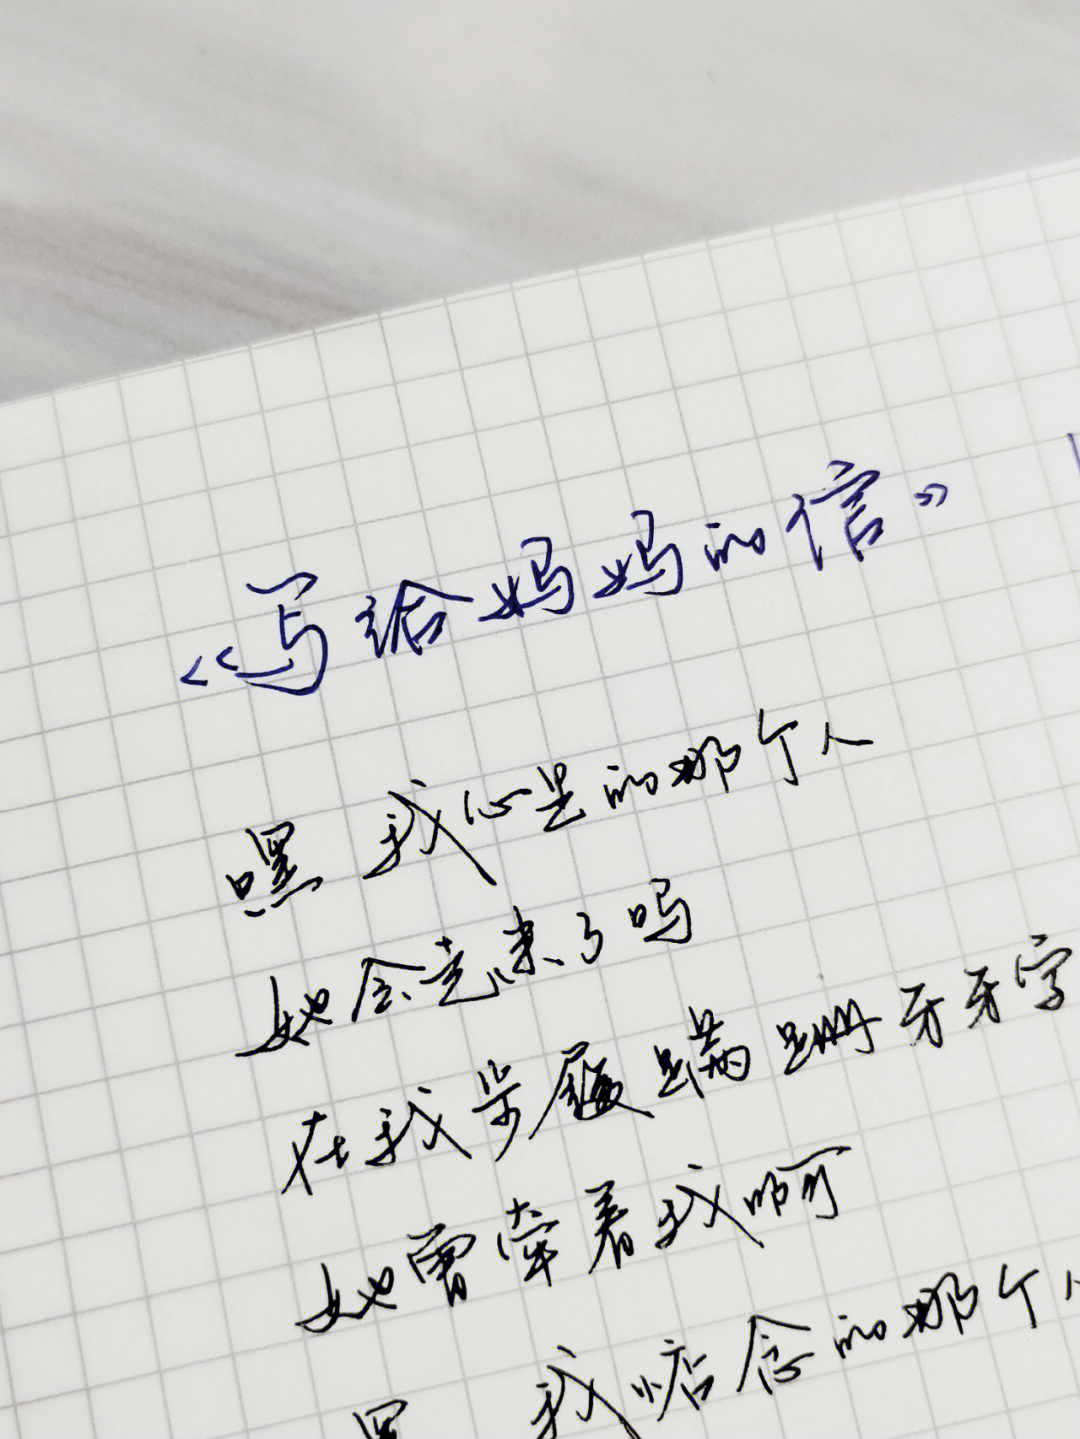 《写给妈妈的信》
嘿 我心里的那个人
她会走来了吗
在我步履蹒跚牙牙字
她曾牵着我啊
嘿 我惦念的那个人